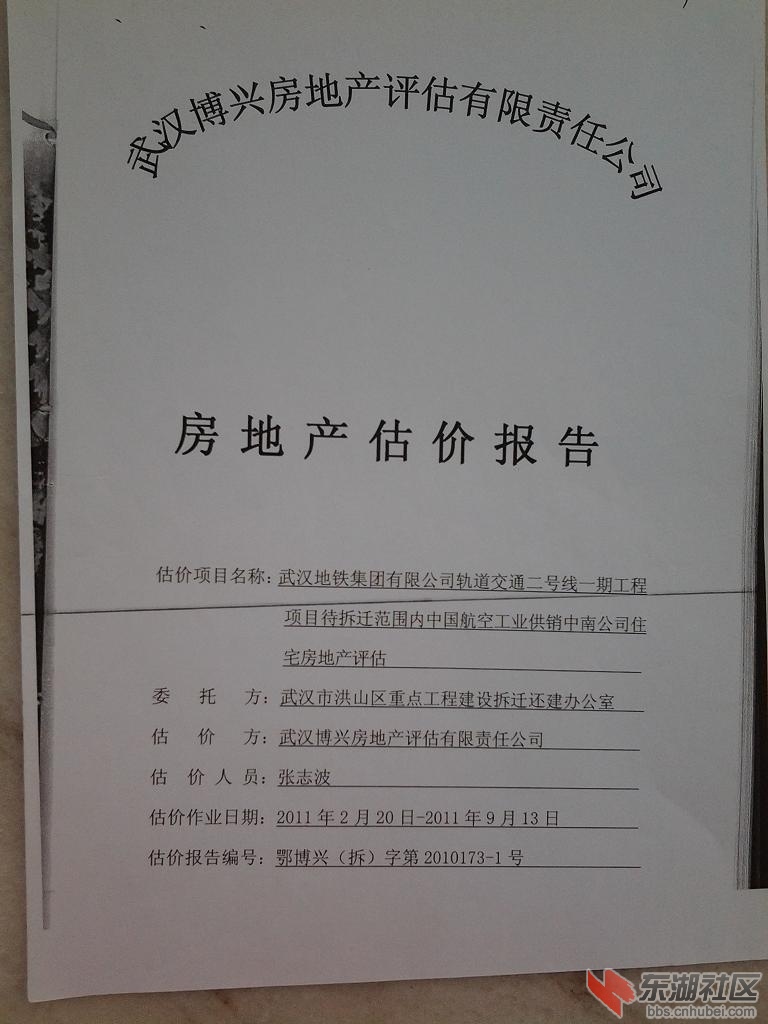 武汉博兴房地产评估有限责任公司
房地产估价报告
估价项目名称：武汉地铁集团有限公司轨道交通二号线一期工程
项目待拆迁范围内中国航空工业供销中南公司住
宅房地产评估
委托方：武汉市洪山区重点工程建设拆迁还建办公室
估价方：武汉博兴房地产评估有限责任公司
估价人员：张志波
估价作业日期：2011年2月20日-2011年9月13日
估价报告编号：鄂博兴（拆）字第2010173-1号
东湖社区
bbs.cnhubei.com